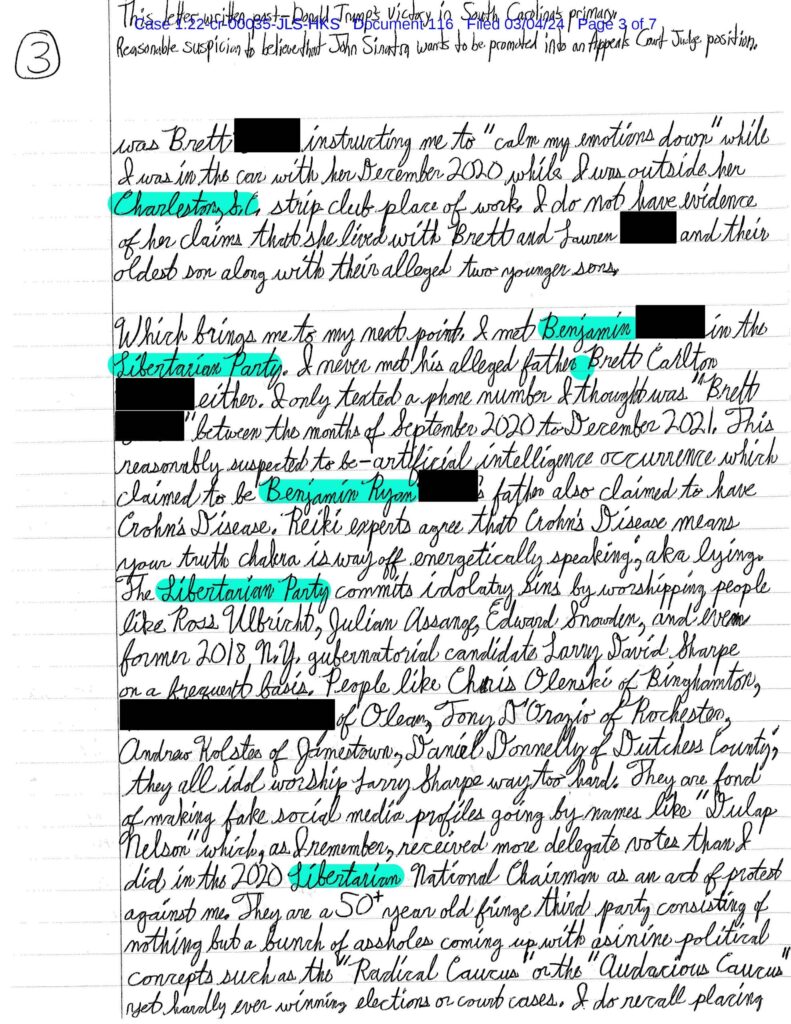 This letter written post-Donald Trump's Victory in South Carolina's primary.
Case 1:22-cr-00035-JLS-HKS Document 116 Filed 03/04/24 Page 3 of 7
Reasonable suspicion to believe that John Sinatra wants to be promoted into an Appeals Court Judge position.
3
was Brett instructing me to "calm my emotions down" while
I was in the car with her December 2020 while I was outside her
Charleston, S.C. strip club place of work. I do not have evidence
of her claims that she lived with Brett and Lauren and their
oldest son along with their alleged two younger sons.
Which brings me to my next point. I met Benjamin in the
Libertarian Party. I never met his alleged father Brett Carlton
either. I only texted a phone number I thought was "Brett
" between the months of September 2020 to December 2021. This
reasonably suspected to be-artificial intelligence occurrence which
claimed to be Benjamin Ryan 's father also claimed to have
Crohn's Disease. Reiki experts agree that Crohn's Disease means
your truth chakra is way off energetically speaking, aka lying.
The Libertarian Party commits idolatry sins by worshipping people
like Ross Ulbricht, Julian Assange, Edward Snowden, and even
former 2018 N.Y. gubernatorial candidate Larry David Sharpe
on a frequent basis. People like Chris Olenski of Binghamton,
of Olean, Tony D'Orazio of Rochester,
Andrew Kolstee of Jamestown, Daniel Donnelly of Dutchess County,
they all idol worship Larry Sharpe way too hard. They are fond
of making fake social media profiles going by names like "Dulap
Nelson" which, as I remember, received more delegate votes than I
did in the 2020 Libertarian National Chairman as an act of protest
against me. They are a 50+ year old fringe third party consisting of
nothing but a bunch of assholes coming up with asinine political
concepts such as the "Radical Caucus" or the "Audacious Caucus"
yet hardly ever winning elections or court cases. I do recall placing